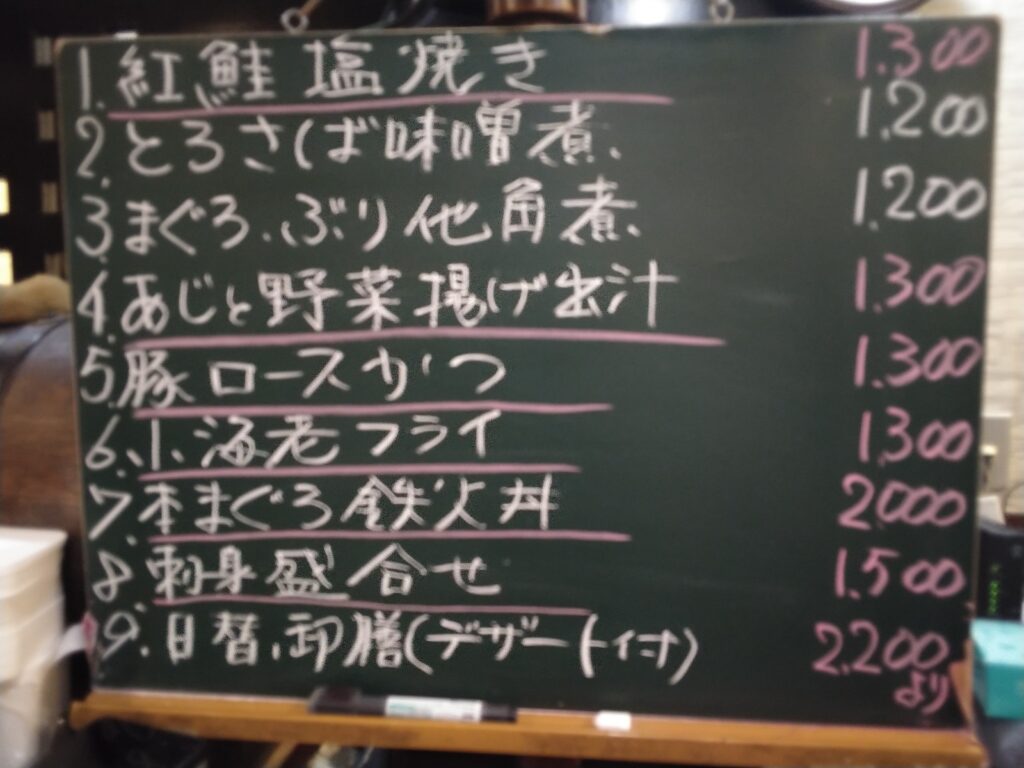 1. 紅鮭塩焼き 1.300
2. とろさば味噌煮 1.200
3. まぐろ.ぶり他角煮 1.200
4. あじと野菜揚げ出汁 1.300
5. 豚ロースかつ 1.300
6. 小海老フライ 1.300
7. 本まぐろ鉄火丼 2000
8 刺身盛合せ 1.500
9. 日替.御膳(デザート付) 2.200
より